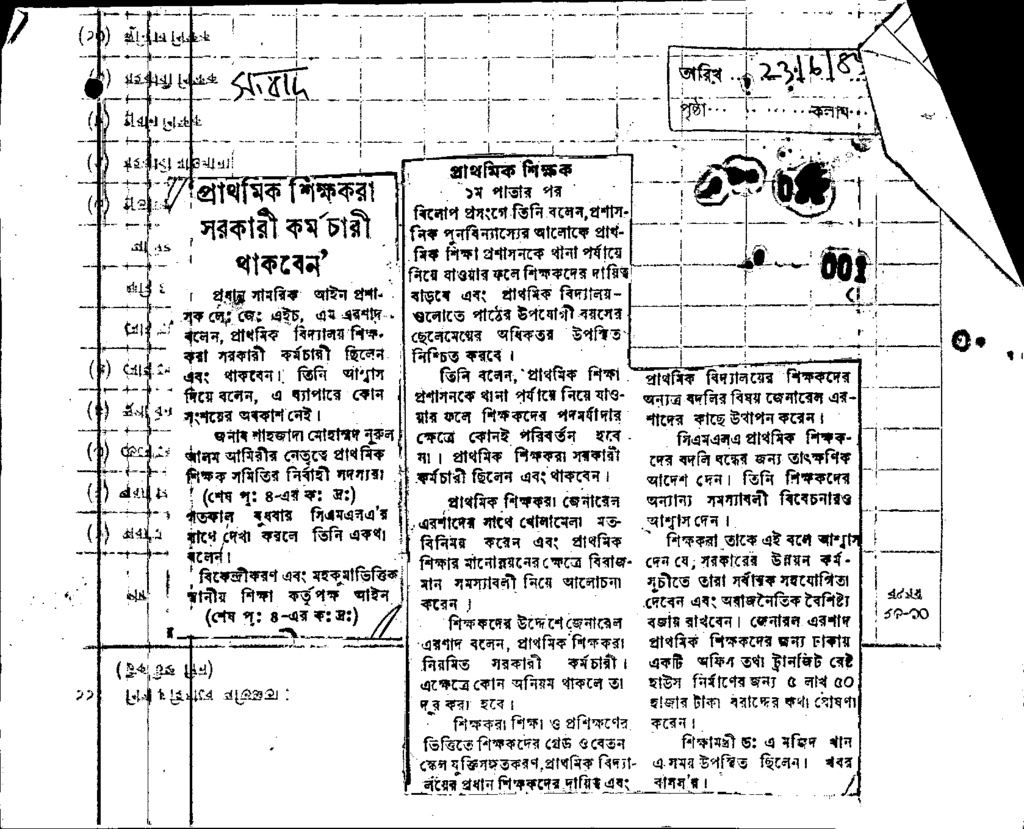 সংবাদ
তারিখ ... 23/6/8
পৃষ্ঠা ... কলাম ...
প্রাথমিক শিক্ষকরা
সরকারী কর্মচারী
থাকবেন'
প্রধান সামরিক আইন প্রশা-
সক লে: জে: এইচ, এম এরশাদ
বলেন, প্রাথমিক বিদ্যালয় শিক্ষ-
করা সরকারী কর্মচারী ছিলেন
এবং থাকবেন। তিনি আশ্বাস
দিয়ে বলেন, এ ব্যাপারে কোন
সংশয়ের অবকাশ নেই।
জনাব শাহজাদা মোহাম্মদ নূরুল
আলম আমিরীর নেতৃত্বে প্রাথমিক
শিক্ষক সমিতির নির্বাহী সদস্যরা
(শেষ পৃ: ৪-এর ক: দ্র:)
গতকাল বুধবার সিএমএলএ'র
সাথে দেখা করলে তিনি একথা
বলেন।
বিকেন্দ্রীকরণ এবং মহকুমাভিত্তিক
স্থানীয় শিক্ষা কর্তৃপক্ষ আইন
(শেষ পৃ: ৪-এর ক: দ্র:)
প্রাথমিক শিক্ষক
১ম পাতার পর
বিলোপ প্রসংগে তিনি বলেন, প্রশাস-
নিক পুনর্বিন্যাস্যের আলোকে প্রাথ-
মিক শিক্ষা প্রশাসনকে থানা পর্যায়ে
নিয়ে যাওয়ার ফলে শিক্ষকদের দায়িত্ব
বাড়বে এবং প্রাথমিক বিদ্যালয়-
গুলোতে পাঠের উপযোগী বয়সের
ছেলেমেয়ের অধিকতর উপস্থিতি
নিশ্চিত করবে।
তিনি বলেন, প্রাথমিক শিক্ষা
প্রশাসনকে থানা পর্যায়ে নিয়ে যাও-
য়ার ফলে শিক্ষকদের পদমর্যাদার
ক্ষেত্রে কোনই পরিবর্তন হবে
না। প্রাথমিক শিক্ষকরা সরকারী
কর্মচারী ছিলেন এবং থাকবেন।
প্রাথমিক শিক্ষকরা জেনারেল
এরশাদের সাথে খোলামেলা মত-
বিনিময় করেন এবং প্রাথমিক
শিক্ষার মানোন্নয়নের ক্ষেত্রে বিরাজ-
মান সমস্যাবলী নিয়ে আলোচনা
করেন।
শিক্ষকদের উদ্দেশে জেনারেল
এরশাদ বলেন, প্রাথমিক শিক্ষকরা
নিয়মিত সরকারী কর্মচারী।
এক্ষেত্রে কোন অনিয়ম থাকলে তা
দূর করা হবে।
শিক্ষকরা শিক্ষা ও প্রশিক্ষণের
ভিত্তিতে শিক্ষকদের গ্রেড ও বেতন
স্কেল যুক্তিসঙ্গতকরণ, প্রাথমিক বিদ্যা-
লয়ের প্রধান শিক্ষকদের দায়িত্ব এবং
প্রাথমিক বিদ্যালয়ের শিক্ষকদের
অন্যত্র বদলির বিষয় জেনারেল এর-
শাদের কাছে উত্থাপন করেন।
সিএমএলএ প্রাথমিক শিক্ষক-
দের বদলি বন্ধের জন্য তাৎক্ষণিক
আদেশ দেন। তিনি শিক্ষকদের
অন্যান্য সমস্যাবলী বিবেচনারও
আশ্বাস দেন।
শিক্ষকরা তাকে এই বলে আশ্বাস
দেন যে, সরকারের উন্নয়ন কর্ম-
সূচীতে তারা সর্বাত্মক সহযোগিতা
দেবেন এবং অরাজনৈতিক বৈশিষ্ট্য
বজায় রাখবেন। জেনারল এরশাদ
প্রাথমিক শিক্ষকদের জন্য ঢাকায়
একটি অফিস তথা ট্রানজিট রেষ্ট
হাউস নির্মাণের জন্য ৫ লাখ ৫০
হাজার টাকা বরাদ্দের কথা ঘোষণা
করেন।
শিক্ষামন্ত্রী ড: এ মজিদ খান
এ সময় উপস্থিত ছিলেন। খবর
বাসস'র।
001